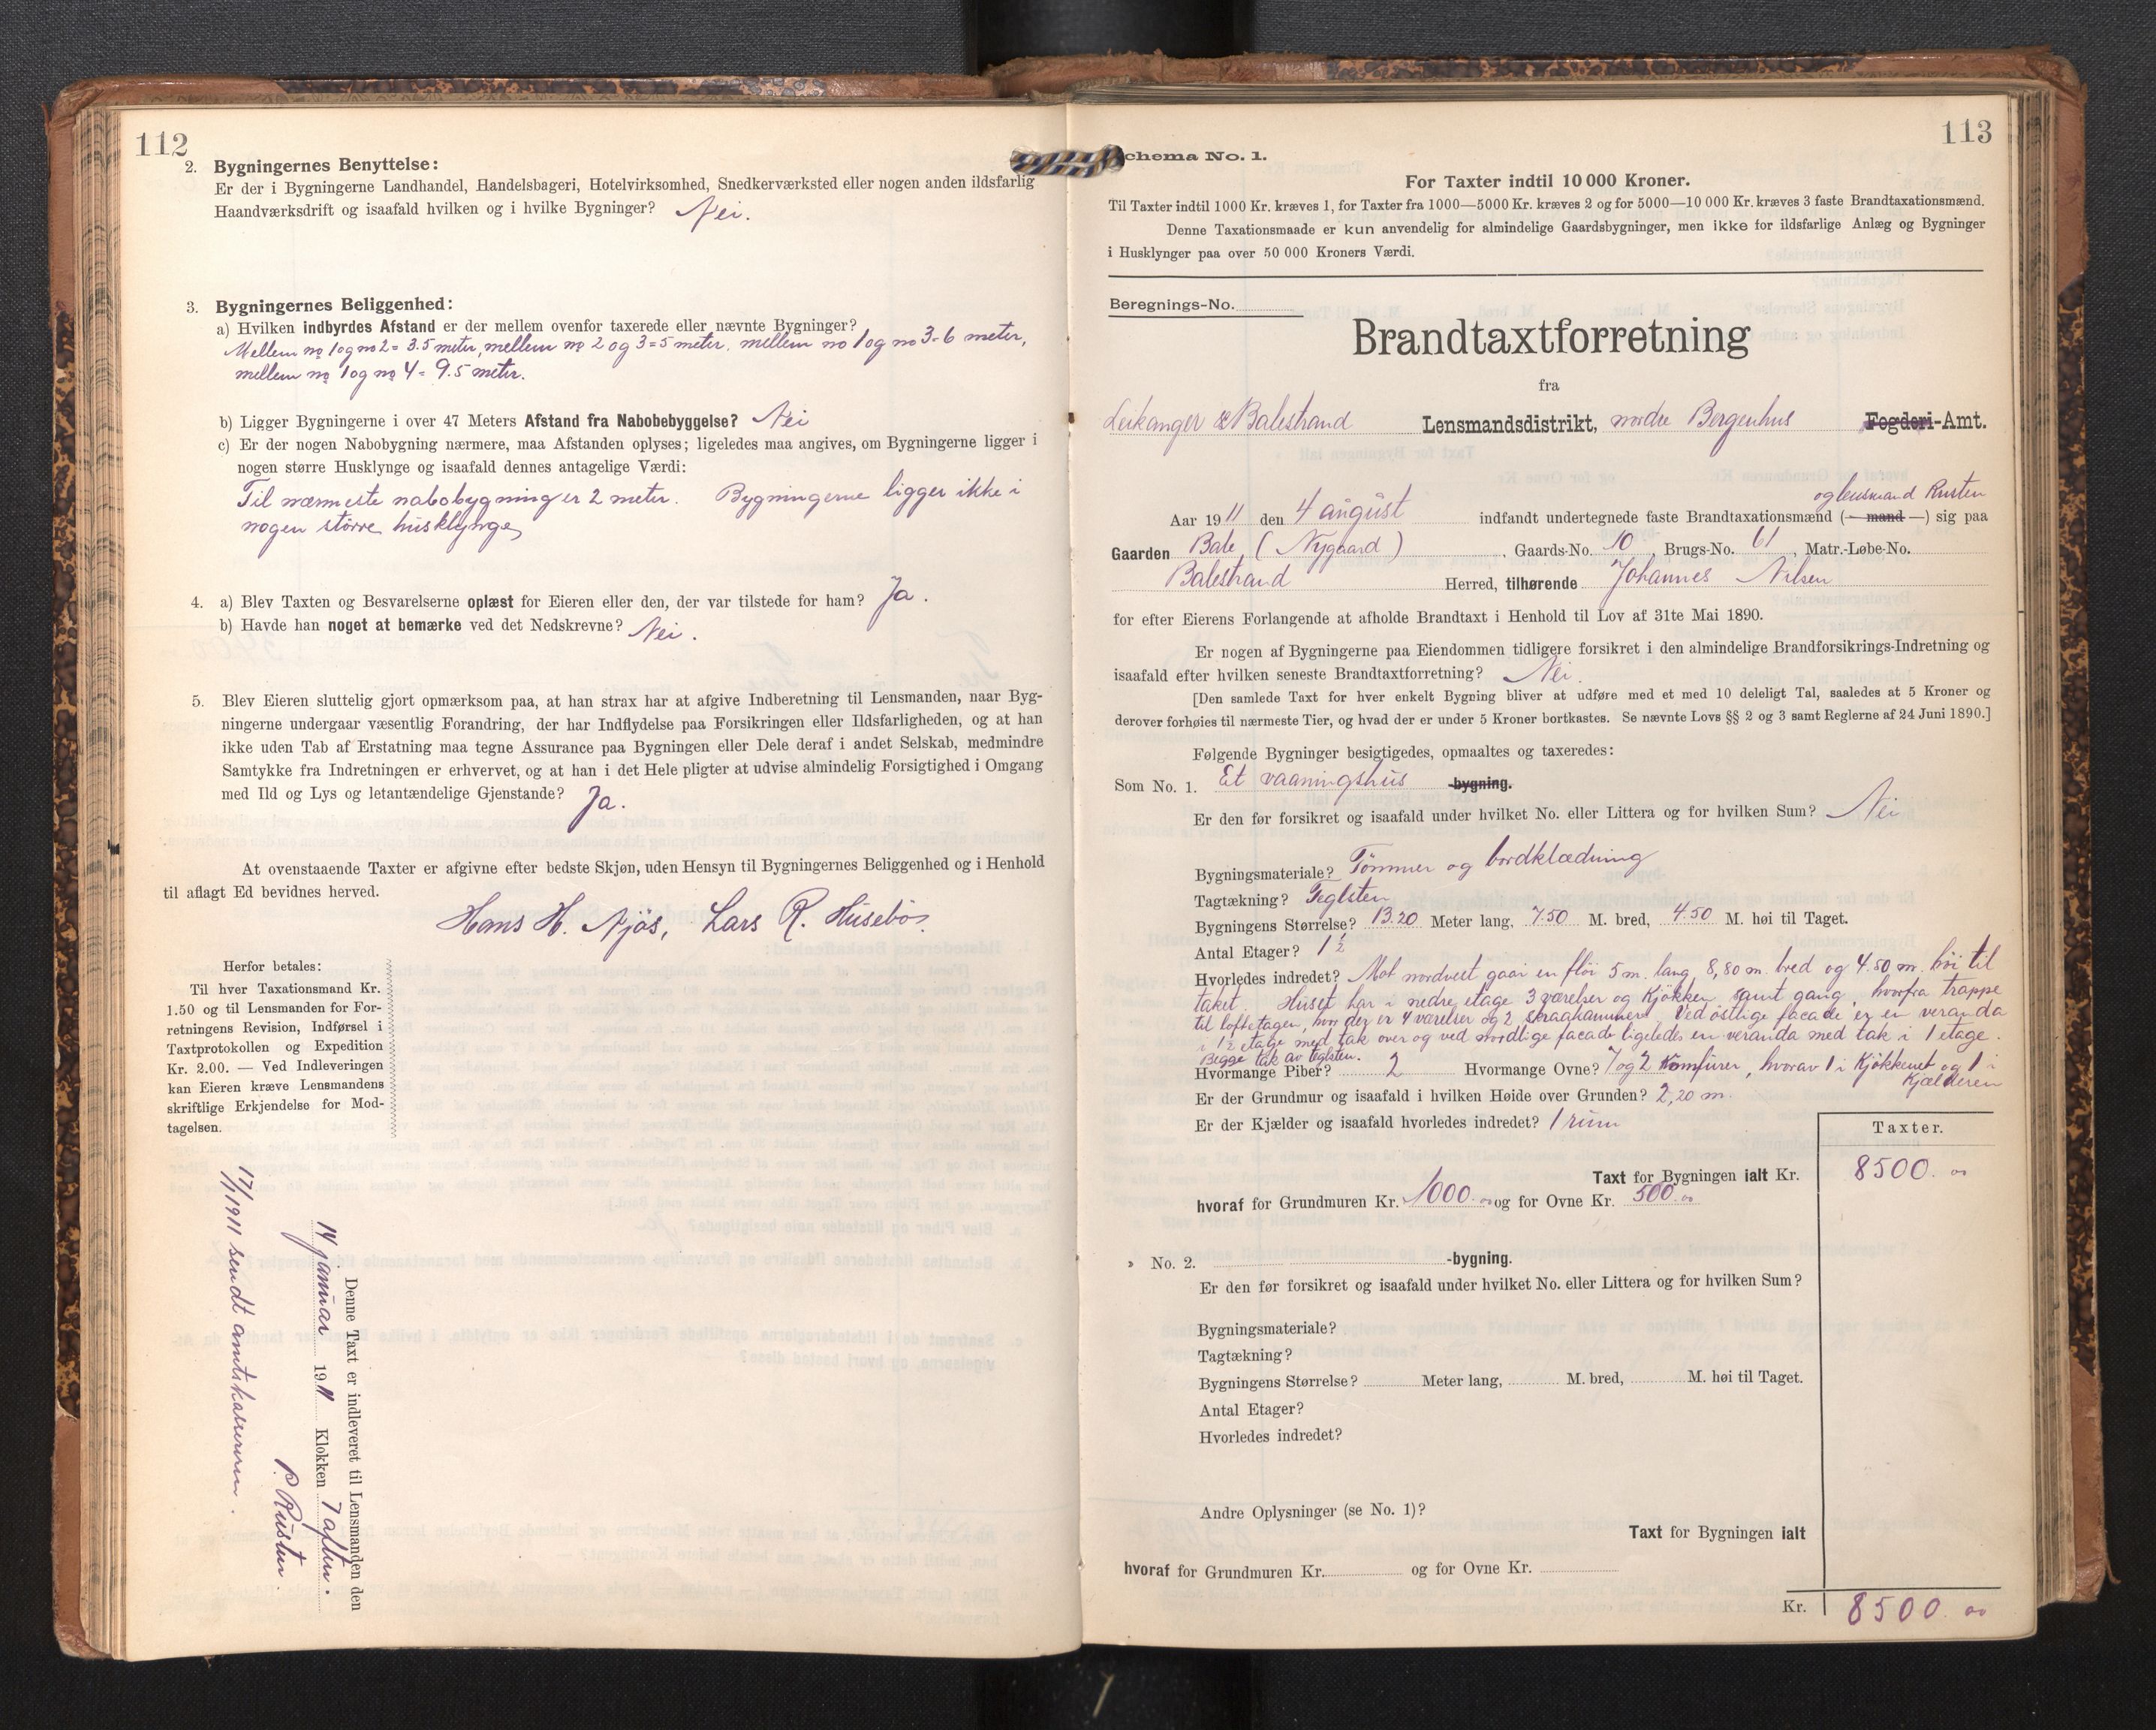 112
2. Bygningernes Benyttelse:
Er der i Bygningerne Landhandel, Handelsbageri, Hotelvirksomhed, Snedkerværksted eller nogen anden ildsfarlig
Haandværksdrift og isaafald hvilken og i hvilke Bygninger? Nei.
3. Bygningernes Beliggenhed:
a) Hvilken indbyrdes Afstand er der mellem ovenfor taxerede eller nævnte Bygninger?
Mellem no 1 og no 2 = 3.5 meter, mellem no 2 og 3 = 5 meter. mellem no 1 og no 3 = 6 meter,
mellem no 1 og no 4 = 9.5 meter.
b) Ligger Bygningerne i over 47 Meters Afstand fra Nabobebyggelse? Nei
c) Er der nogen Nabobygning nærmere, maa Afstanden oplyses; ligeledes maa angives, om Bygningerne ligger i
nogen større Husklynge og isaafald dennes antagelige Værdi:
Til nærmeste nabobygning er 2 meter. Bygningerne ligger ikke i
nogen större husklynge
4. a) Blev Taxten og Besvarelserne oplæst for Eieren eller den, der var tilstede for ham? Ja.
b) Havde han noget at bemærke ved det Nedskrevne? Nei.
5. Blev Eieren sluttelig gjort opmærksom paa, at han strax har at afgive Indberetning til Lensmanden, naar Byg-
ningerne undergaar væsentlig Forandring, der har Indflydelse paa Forsikringen eller Ildsfarligheden, og at han
ikke uden Tab af Erstatning maa tegne Assurance paa Bygningen eller Dele deraf i andet Selskab, medmindre
Samtykke fra Indretningen er erhvervet, og at han i det Hele pligter at udvise almindelig Forsigtighed i Omgang
med Ild og Lys og letantændelige Gjenstande? Ja.
At ovenstaaende Taxter er afgivne efter bedste Skjøn, uden Hensyn til Bygningernes Beliggenhed og i Henhold
til aflagt Ed bevidnes herved.
Hans H. Njös, Lars R. Husebö.
Herfor betales:
Til hver Taxationsmand Kr.
1.50 og til Lensmanden for For-
retningens Revision, Indførsel i
Taxtprotokollen og Expedition
Kr. 2.00. — Ved Indleveringen
kan Eieren kræve Lensmandens
skriftlige Erkjendelse for Mod-
tagelsen.
Denne Taxt er indleveret til Lensmanden den
14 januar 1911 Klokken 7 aften.
P. Rusten
17/1 1911 sendt amtskasseren.
113
Schema No. 1.
For Taxter indtil 10 000 Kroner.
Til Taxter indtil 1000 Kr. kræves 1, for Taxter fra 1000—5000 Kr. kræves 2 og for 5000—10 000 Kr. kræves 3 faste Brandtaxationsmænd.
Denne Taxationsmaade er kun anvendelig for almindelige Gaardsbygninger, men ikke for ildsfarlige Anlæg og Bygninger
i Husklynger paa over 50 000 Kroners Værdi.
Beregnings-No.
Brandtaxtforretning
fra
Leikanger & Balestrand Lensmandsdistrikt, nordre Bergenhus Fogderi-Amt.
og lensmand Rusten
Aar 1911 den 4 august indfandt undertegnede faste Brandtaxationsmænd (— mand —) sig paa
Gaarden Bale (Nygaard), Gaards-No. 10, Brugs-No. 61, Matr.-Løbe-No.
Balestrand Herred, tilhørende Johannes Nilsen
for efter Eierens Forlangende at afholde Brandtaxt i Henhold til Lov af 31te Mai 1890.
Er nogen af Bygningerne paa Eiendommen tidligere forsikret i den almindelige Brandforsikrings-Indretning og
isaafald efter hvilken seneste Brandtaxtforretning? Nei.
[Den samlede Taxt for hver enkelt Bygning bliver at udføre med et med 10 deleligt Tal, saaledes at 5 Kroner og
derover forhøies til nærmeste Tier, og hvad der er under 5 Kroner bortkastes. Se nævnte Lovs §§ 2 og 3 samt Reglerne af 24 Juni 1890.]
Følgende Bygninger besigtigedes, opmaaltes og taxeredes:
Som No. 1. Et vaaningshus -bygning.
Er den før forsikret og isaafald under hvilket No. eller Littera og for hvilken Sum? Nei
Bygningsmateriale? Tömmer og bordklædning
Tagtækning? Teglsten
Bygningens Størrelse? 13.20 Meter lang, 7.50 M. bred, 4.50 M. høi til Taget.
Antal Etager? 1½
Hvorledes indredet? Mot nordvest gaar en flöi 5 m. lang, 8,80 m. bred og 4.50 m. höi til
taket. Huset har i nedre etage 3 værelser og Kjökken samt gang, hvorfra trappe
til loftsetagen, hvor der er 4 værelser og 2 skraakammere. Ved östlige facade er en veranda
i 1½ etage med tak over og ved nordlige facade ligeledes en veranda med tak i 1 etage.
Begge tak av teglsten.
Hvormange Piber? 2 Hvormange Ovne? 7 og 2 Komfürer, hvorav 1 i Kjökkenet og 1 i
Kjælderen
Er der Grundmur og isaafald i hvilken Høide over Grunden? 2,20 m.
Er der Kjælder og isaafald hvorledes indredet? 1 rum
Taxter.
Taxt for Bygningen ialt Kr. 8500. 00
hvoraf for Grundmuren Kr. 1000. 00 og for Ovne Kr. 500. 00
» No. 2. -bygning.
Er den før forsikret og isaafald under hvilket No. eller Littera og for hvilken Sum?
Bygningsmateriale?
Tagtækning?
Bygningens Størrelse? Meter lang, M. bred, M. høi til Taget.
Antal Etager?
Hvorledes indredet?
Andre Oplysninger (se No. 1)?
Taxt for Bygningen ialt
hvoraf for Grundmuren Kr. og for Ovne Kr.
Kr. 8500. 00